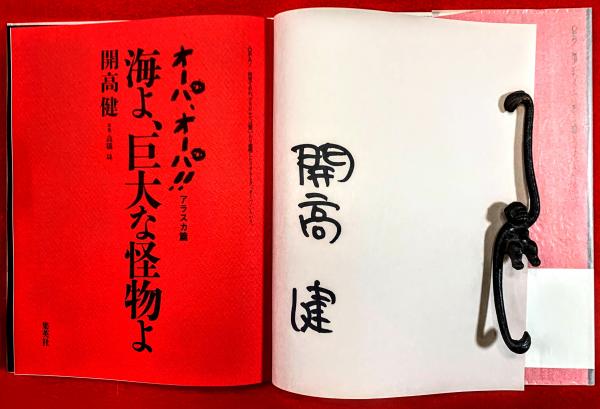 オーパ、オーパ!!
アラスカ篇
海よ、巨大な怪物よ
開高健
集英社
開高
健